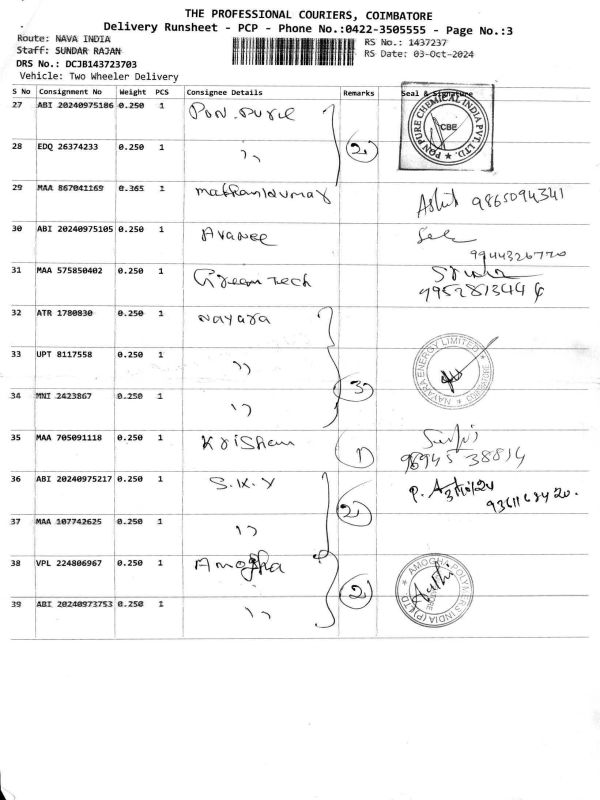 THE PROFESSIONAL COURIERS, COIMBATORE
Delivery Runsheet - PCP - Phone No.:0422-3505555 - Page No.:3
Route: NAVA INDIA
RS No.: 1437237
Staff: SUNDAR RAJAN
RS Date: 03-Oct-2024
DRS No.: DCJB143723703
Vehicle: Two Wheeler Delivery
S No Consignment No Weight PCS Consignee Details Remarks Seal & Signature
27 ABI 20240975186 0.250 1 Pon. pure
PON PURE CHEMICAL INDIA PVT. LTD. CBE
28 EDQ 26374233 0.250 1 ,, 2
29 MAA 867041169 0.365 1 9865094341
30 ABI 20240975105 0.250 1 Avanee
9944326770
31 MAA 575850402 0.250 1 Green Tech
9952813446
32 ATR 1780830 0.250 1 Nayara
NAYARA ENERGY LIMITED
33 UPT 8117558 0.250 1 ,,
34 MNI 2423867 0.250 1 ,, 3
35 MAA 705091118 0.250 1 1
9694538814
36 ABI 20240975217 0.250 1 S.K.Y
37 MAA 107742625 0.250 1 ,, 2
38 VPL 224806967 0.250 1 Amogha
AMOGHA POLYMERS INDIA (P) LTD
39 ABI 20240973753 0.250 1 ,, 2